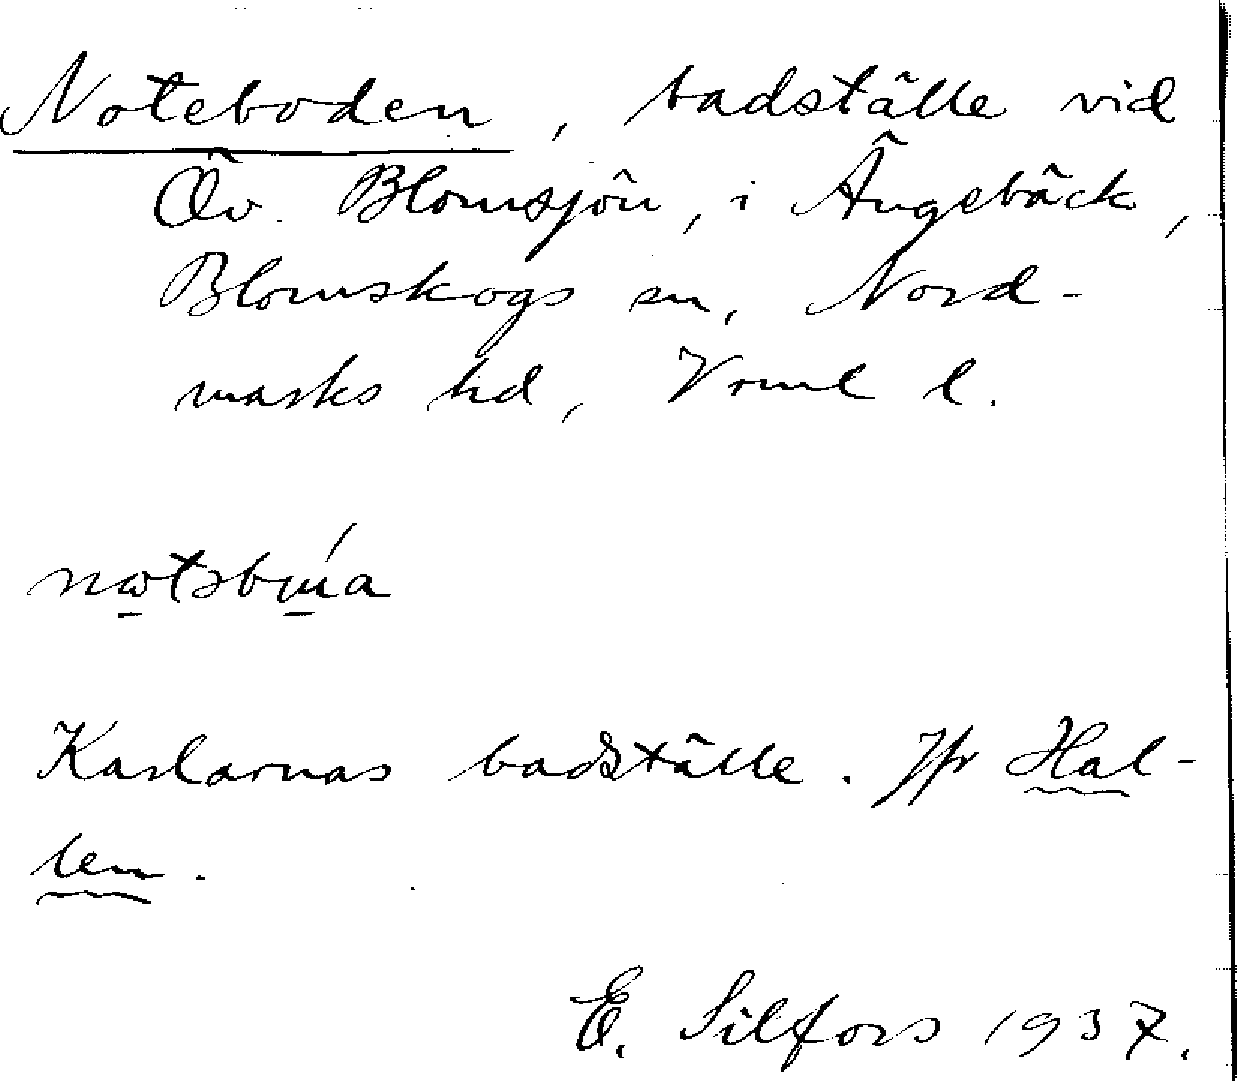 Noteboden, badställe vid
Öv. Blomsjön, i Ängebäck,
Blomskogs sn, Nord-
marks hd, Vrml l.
Karlarnas badställe. Jfr Hal-
len.
E. Silfors 1937.